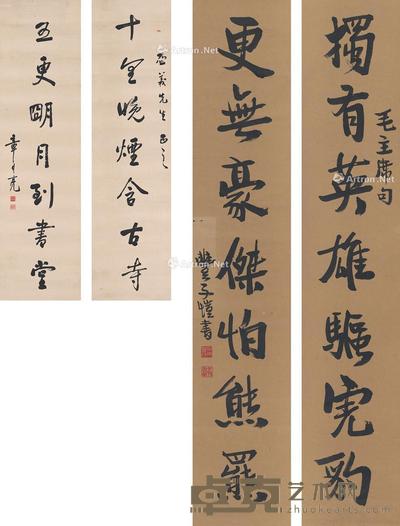 獨有英雄驅虎豹
毛主席句
更無豪傑怕熊羆
豐子愷書
十里晚煙含古寺
先生正之
五更明月到書堂
Artron.Net
Artron.Net
Artron.Net
Artron.Net
卓克艺术网